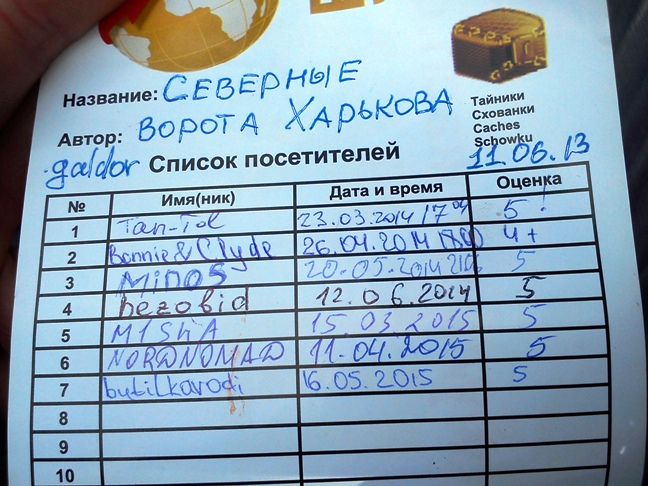 Название: СЕВЕРНЫЕ
Автор: ВОРОТА ХАРЬКОВА
Тайники
Схованки
Caches
Schowku
galdor Список посетителей 11.06.13
№ Имя(ник) Дата и время Оценка
1 Tan-Tol 23.03.2014 17 00 5!
2 Bonnie & Clyde 26.04.2014 4+
3 Minos 20.05.2014 5
4 bezobid 12.06.2014 5
5 MISHA 15.03.2015 5
6 NORDNOMAD 11.04.2015 5
7 butilkavodi 16.05.2015 5
8
9
10